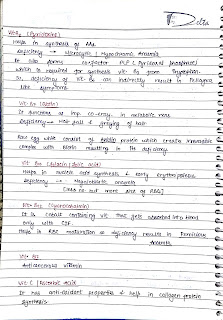 Delta
Vit B6 (Pyridoxine)
Helps in synthesis of AAs.
Deficiency → Microcytic, Hypochromic Anaemia
It also forms co-factor PLP (Pyridoxal phosphate)
which is required for synthesis vit B3 from Tryptophan.
So, deficiency of vit B6 can indirectly result in Pellagra
like symptoms.
Vit B7 (Biotin)
It functions as imp co-enzy. in metabolic rxns
Deficiency → Hair fall & greying of hair.
Raw egg white consist of avidin protein which creates
complex with Biotin resulting in its deficiency.
Vit B9 (folacin/folic acid)
Helps in nucleic acid synthesis & early erythropoiesis
Deficiency → Megaloblastic anaemia
Vit B12 (Cyanocobalamin)
It is Cobalt containing vit that gets absorbed into blood
only with
Helps in RBC maturation so deficiency results in Pernicious
Anaemia.
Vit
vitamin
Vit C (Ascorbic Acid)
It has anti-oxidant properties & help in collagen protein
synthesis